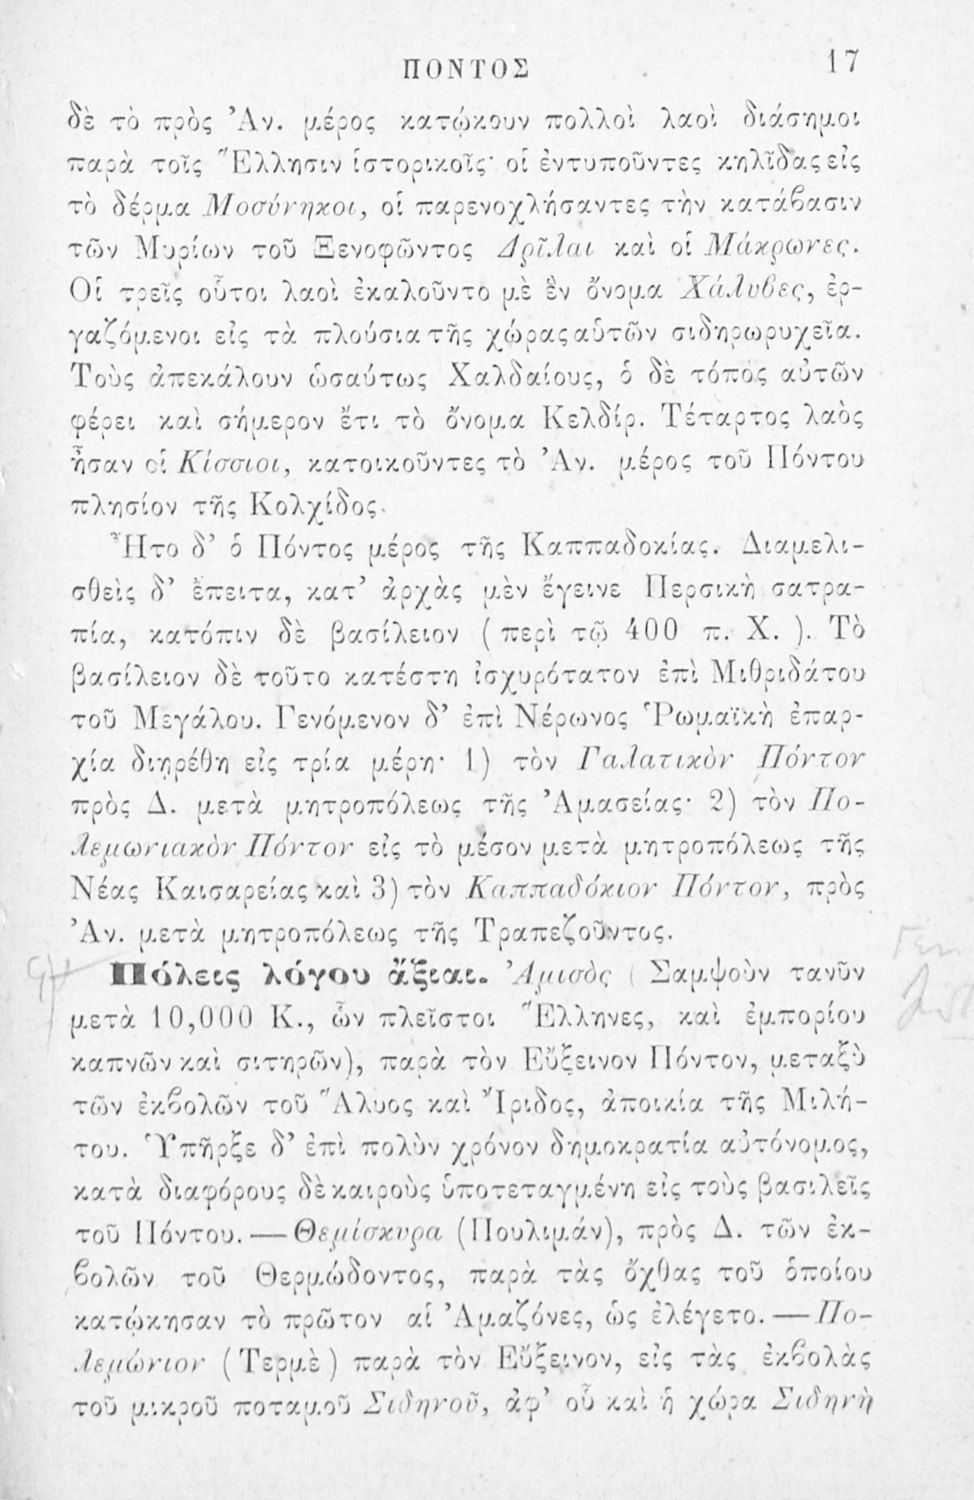 ΠΟΝΤΟΣ 17
δὲ τὸ πρὸς Ἀν. μέρος κατῴκουν πολλοὶ λαοὶ διάσημοι
παρὰ τοῖς Ἕλλησιν ἱστορικοῖς· οἱ ἐντυποῦντες κηλῖδας εἰς
τὸ δέρμα Μοσύνηκοι, οἱ παρενοχλήσαντες τὴν κατάβασιν
τῶν Μυρίων τοῦ Ξενοφῶντος Δρῖλαι καὶ οἱ Μάκρωνες.
Οἱ τρεῖς οὗτοι λαοὶ ἐκαλοῦντο μὲ ἓν ὄνομα Χάλυβες, ἐρ-
γαζόμενοι εἰς τὰ πλούσια τῆς χώρας αὑτῶν σιδηρωρυχεῖα.
Τοὺς ἀπεκάλουν ὡσαύτως Χαλδαίους, ὁ δὲ τόπος αὐτῶν
φέρει καὶ σήμερον ἔτι τὸ ὄνομα Κελδίρ. Τέταρτος λαὸς
ἦσαν οἱ Κίσσιοι, κατοικοῦντες τὸ Ἀν. μέρος τοῦ Πόντου
πλησίον τῆς Κολχίδος.
Ἦτο δ' ὁ Πόντος μέρος τῆς Καππαδοκίας. Διαμελι-
σθεὶς δ' ἔπειτα, κατ' ἀρχὰς μὲν ἔγεινε Περσικὴ σατρα-
πία, κατόπιν δὲ βασίλειον ( περὶ τῷ 400 π. Χ. ). Τὸ
βασίλειον δὲ τοῦτο κατέστη ἰσχυρότατον ἐπὶ Μιθριδάτου
τοῦ Μεγάλου. Γενόμενον δ' ἐπὶ Νέρωνος Ῥωμαϊκὴ ἐπαρ-
χία διῃρέθη εἰς τρία μέρη· 1) τὸν Γαλατικὸν Πόντον
πρὸς Δ. μετὰ μητροπόλεως τῆς Ἀμασείας· 2) τὸν Πο-
λεμωνιακὸν Πόντον εἰς τὸ μέσον μετὰ μητροπόλεως τῆς
Νέας Καισαρείας καὶ 3) τὸν Καππαδόκιον Πόντον, πρὸς
Ἀν. μετὰ μητροπόλεως τῆς Τραπεζοῦντος.
Πόλεις λόγου ἄξιαι. Ἀμισὸς ( Σαμψοὺν τανῦν
μετὰ 10,000 Κ., ὧν πλεῖστοι Ἕλληνες, καὶ ἐμπορίου
καπνῶν καὶ σιτηρῶν), παρὰ τὸν Εὔξεινον Πόντον, μεταξὺ
τῶν ἐκβολῶν τοῦ Ἅλυος καὶ Ἴριδος, ἀποικία τῆς Μιλή-
του. Ὑπῆρξε δ' ἐπὶ πολὺν χρόνον δημοκρατία αὐτόνομος,
κατὰ διαφόρους δὲ καιροὺς ὑποτεταγμένη εἰς τοὺς βασιλεῖς
τοῦ Πόντου. — Θεμίσκυρα (Πουλιμάν), πρὸς Δ. τῶν ἐκ-
βολῶν τοῦ Θερμώδοντος, παρὰ τὰς ὄχθας τοῦ ὁποίου
κατῴκησαν τὸ πρῶτον αἱ Ἀμαζόνες, ὡς ἐλέγετο. — Πο-
λεμώνιον ( Τερμὲ ) παρὰ τὸν Εὔξεινον, εἰς τὰς ἐκβολὰς
τοῦ μικροῦ ποταμοῦ Σιδηνοῦ, ἀφ' οὗ καὶ ἡ χώρα Σιδηνὴ